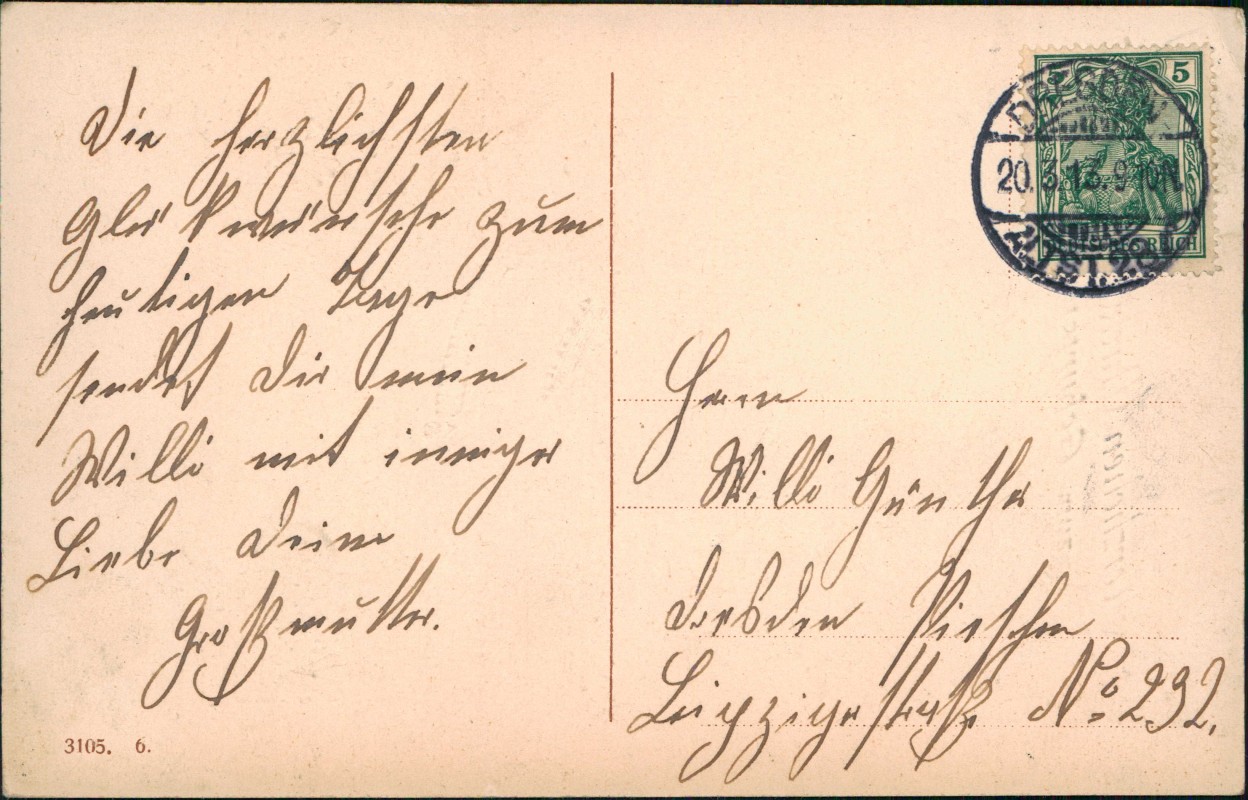 Die herzlichsten
Glückwünsche zum
heutigen Tage
sendet Dir mein
Willi mit inniger
Liebe Deine
Großmutter.
3105. 6.
5 5
DRESDEN
20.3.13. 9-10N.
ALTST. 28
DEUTSCHES REICH
Herrn
Willi Günther
Dresden Pieschen
Leipzigerstraße No 292.